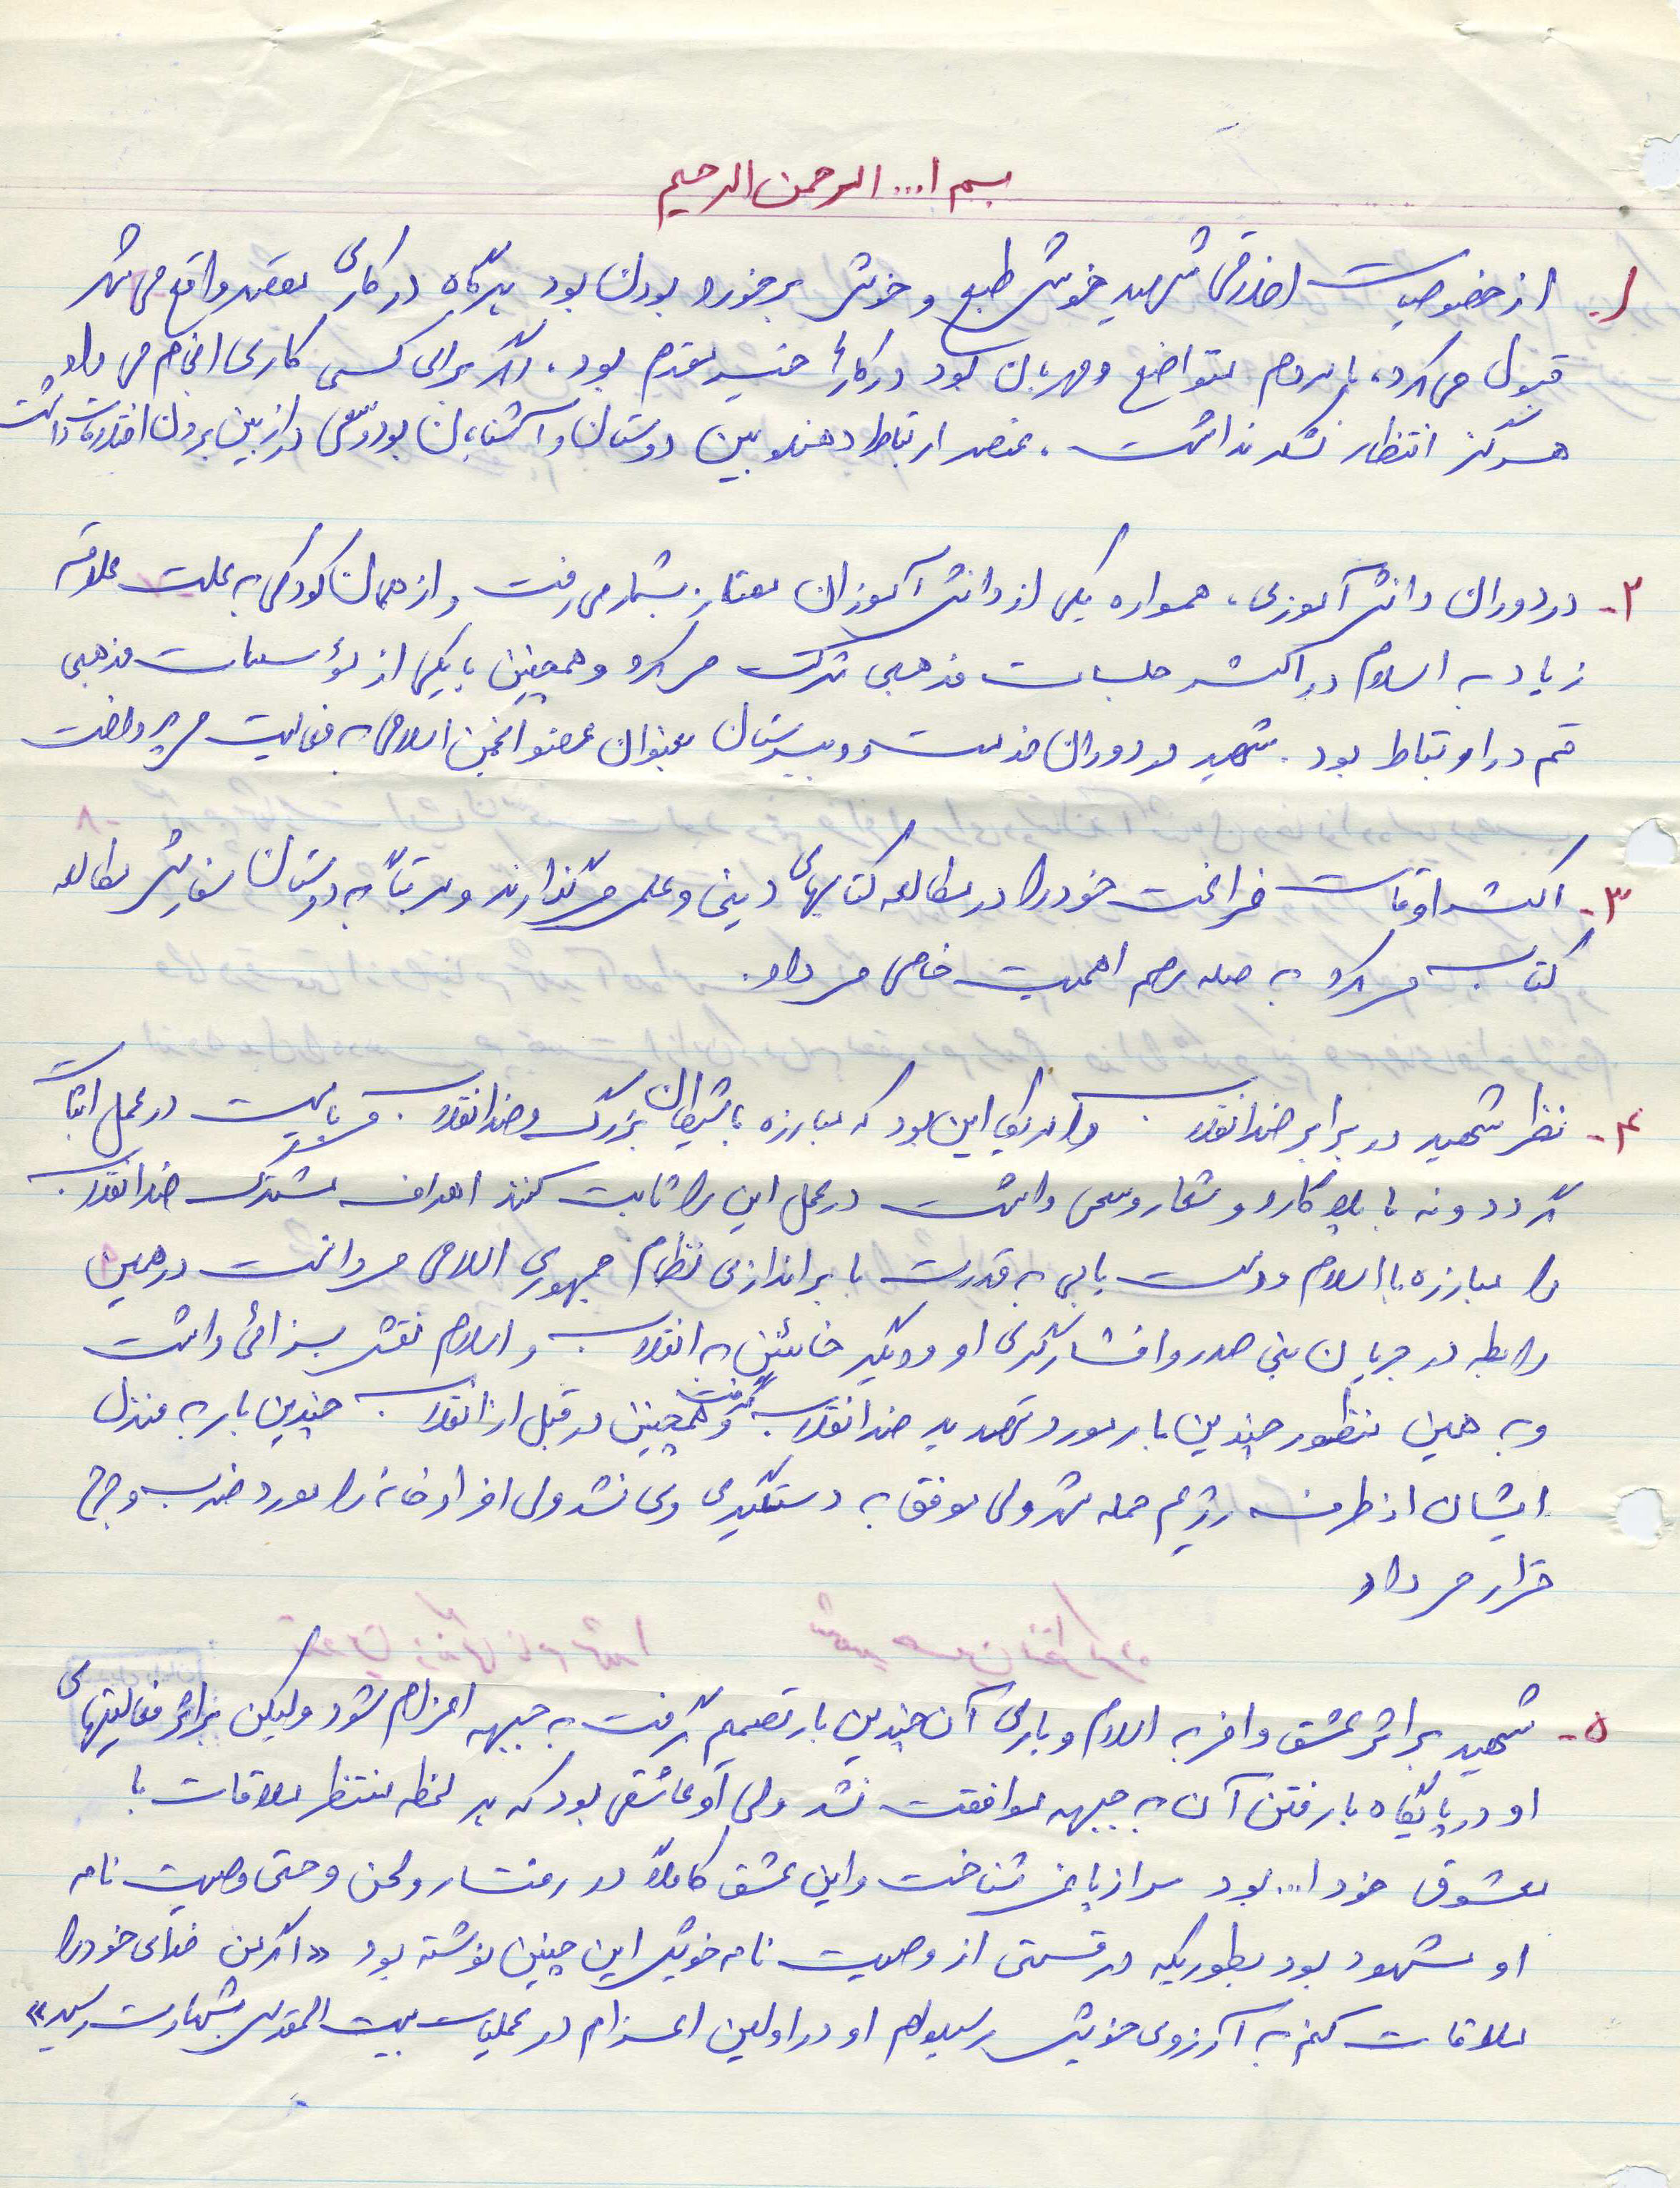 بسم ا... الرحمن الرحیم
۱- از خصوصیات اخلاقی شهید خوش طبع و خوش برخورد بودن بود هرگاه در کاری مقصر واقع می شد
قبول می کرد، با مردم متواضع و مهربان بود در کارهٔ خیر مقدم بود. اگر برای کسی کاری انجام می داد
هرگز انتظار تشکر نداشت، عنصر ارتباط دهنده بین دوستان و آشنایان بود و سعی در از بین بردن اختلافات داشت
۲- در دوران دانش آموزی، همواره یکی از دانش آموزان ممتاز بشمار می رفت و از همان کودکی به علت علاقه
زیاد به اسلام در اکثر جلسات مذهبی شرکت می کرد و همچنین با یکی از مؤسسات مذهبی
قم در ارتباط بود. شهید در دوران خدمت دبیرستان بعنوان عضو انجمن اسلامی به فعالیت می پرداخت
۳- اکثر اوقات فراغت خود را در مطالعه کتابهای دینی و علمی می گذارند و مرتباً به دوستان سفارش مطالعه
کتاب می کرد به صله رحم اهمیت خاصی می داد.
۴- نظر شهید در برابر ضد انقلاب و آمریکا این بود که مبارزه با شیطان بزرگ و ضد انقلاب می بایست در عمل اثبات
گردد و نه با پلاکارد و شعار و سعی داشت در عمل این را ثابت کند اهداف مشترک ضد انقلاب
را مبارزه با اسلام و دست یابی به قدرت با براندازی نظام جمهوری اسلامی می دانست در همین
رابطه در جریان بنی صدر و افشارگری او و دیگر خائنین به انقلاب و اسلام نقش بسزائی داشت
و به همین منظور چندین بار مورد تهدید ضد انقلاب قرار گرفت و همچنین در قبل از انقلاب چندین بار به منزل
ایشان از طرف رژیم حمله شد ولی موفق به دستگیری وی نشد ولی افراد خانه را مورد ضرب و جرح
قرار می داد
۵- شهید بر اثر عشق وافر به اسلام و یاری آن چندین بار تصمیم گرفت به جبهه اعزام شود ولیکن بر اثر فعالیتهای
او در پایگاه با رفتن آن به جبهه موافقت نشد ولی او عاشقی بود که هر لحظه منتظر ملاقات با
معشوق خود ا... بود سر از پا نمی شناخت و این عشق کاملاً در رفتار و لحن و حتی وصیت نامه
او مشهود بود بطوریکه در قسمتی از وصیت نامه خویش این چنین نوشته بود «اگر من خدای خود را
ملاقات کنم به آرزوی خویش رسیده‌ام او در اولین اعزام در عملیات بیت المقدس بشهادت رسید»